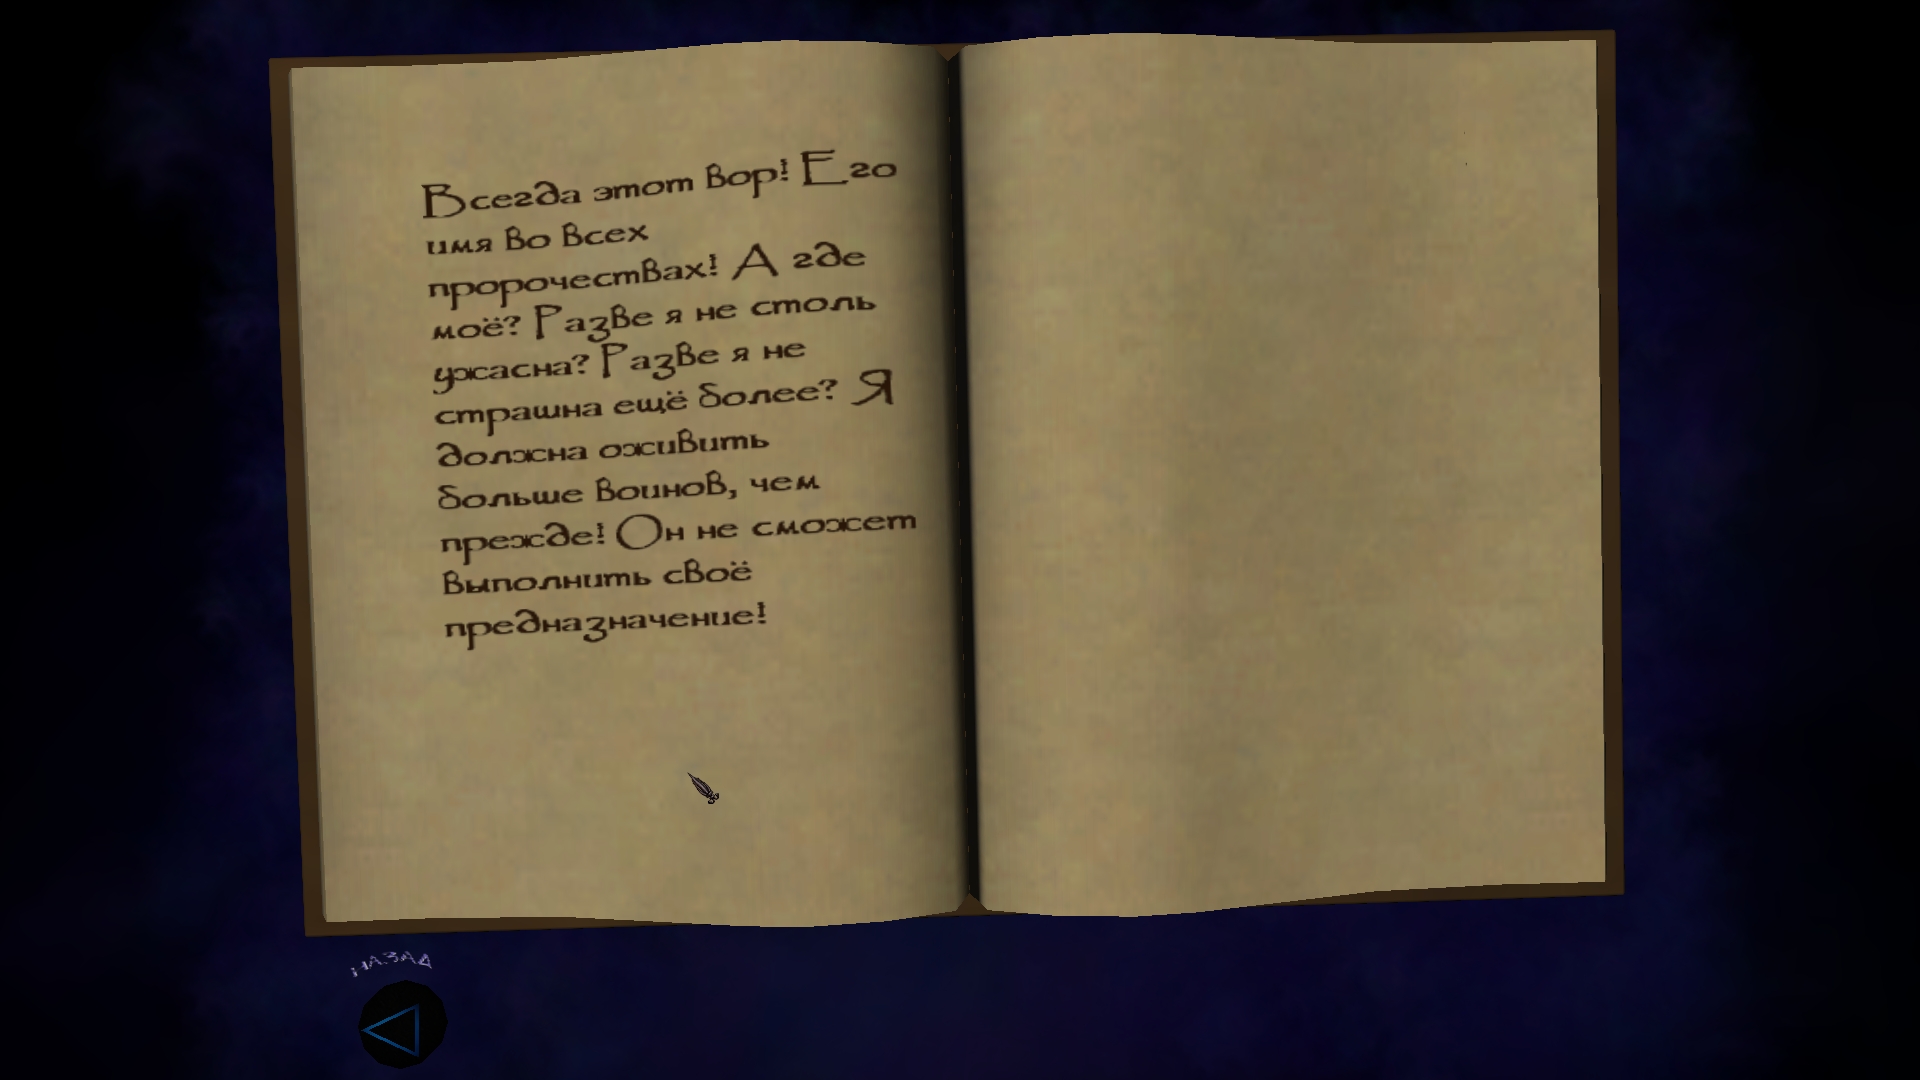 Всегда этот вор! Его
имя во всех
пророчествах! А где
моё? Разве я не столь
ужасна? Разве я не
страшна ещё более? Я
должна оживить
больше воинов, чем
прежде! Он не сможет
выполнить своё
предназначение!
НАЗАД